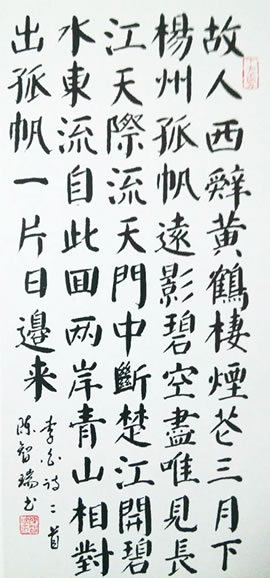 故人西辤黄鶴樓煙花三月下
楊州孤帆遠影碧空盡唯見長
江天際流天門中斷楚江開碧
水東流自此回两岸青山相對
出孤帆一片日邊来
李白詩二首
陈智瑞书